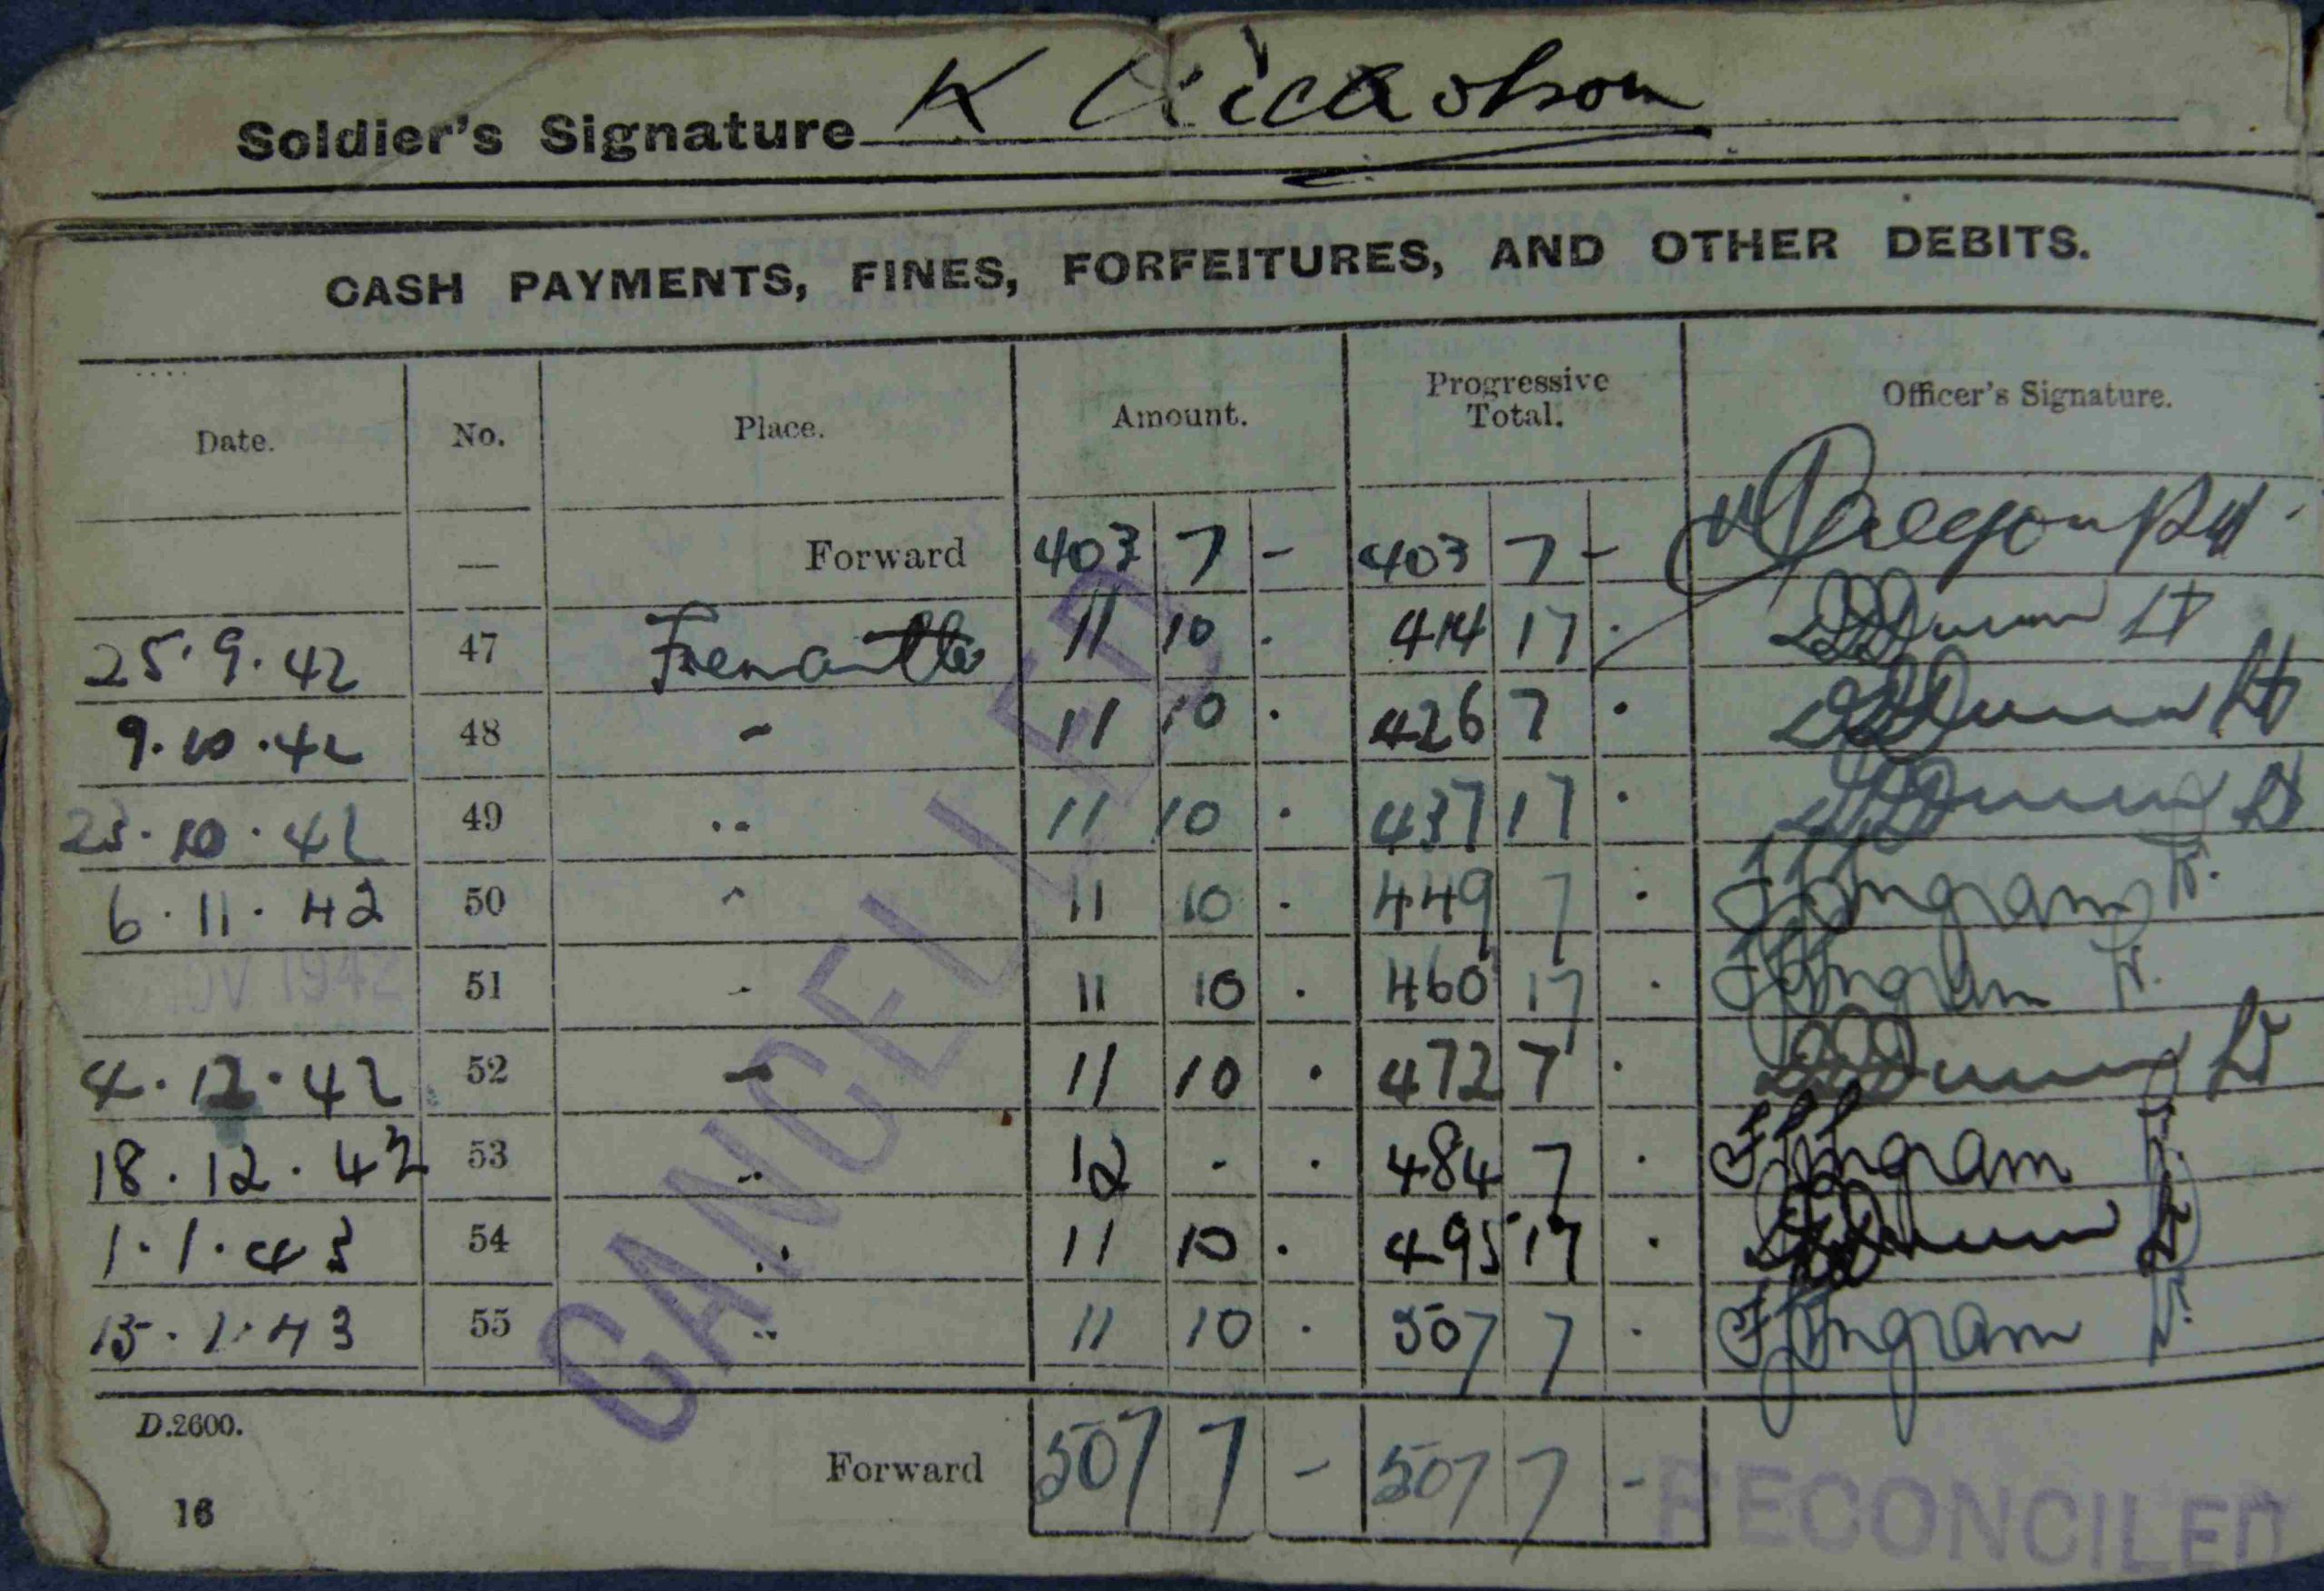 Soldier's Signature K Nicholson
CASH PAYMENTS, FINES, FORFEITURES, AND OTHER DEBITS.
Date. No. Place. Amount. Progressive Total. Officer's Signature.
— Forward 403 7 - 403 7 -
25.9.42 47 Fremantle 11 10 . 414 17 . Lt
9.10.42 48 " 11 10 . 426 7 . Lt
23.10.42 49 " 11 10 . 437 17 . Lt
6.11.42 50 " 11 10 . 449 7 . Ingram Lt.
NOV 1942 51 " 11 10 . 460 17 . Ingram Lt.
4.12.42 52 " 11 10 . 472 7 . Lt
18.12.42 53 " 12 - . 484 7 . Ingram Lt.
1.1.43 54 " 11 10 . 495 17 . Lt
15.1.43 55 " 11 10 . 507 7 . Ingram Lt.
CANCELLED
D.2600.
Forward 507 7 - 507 7 -
16
RECONCILED